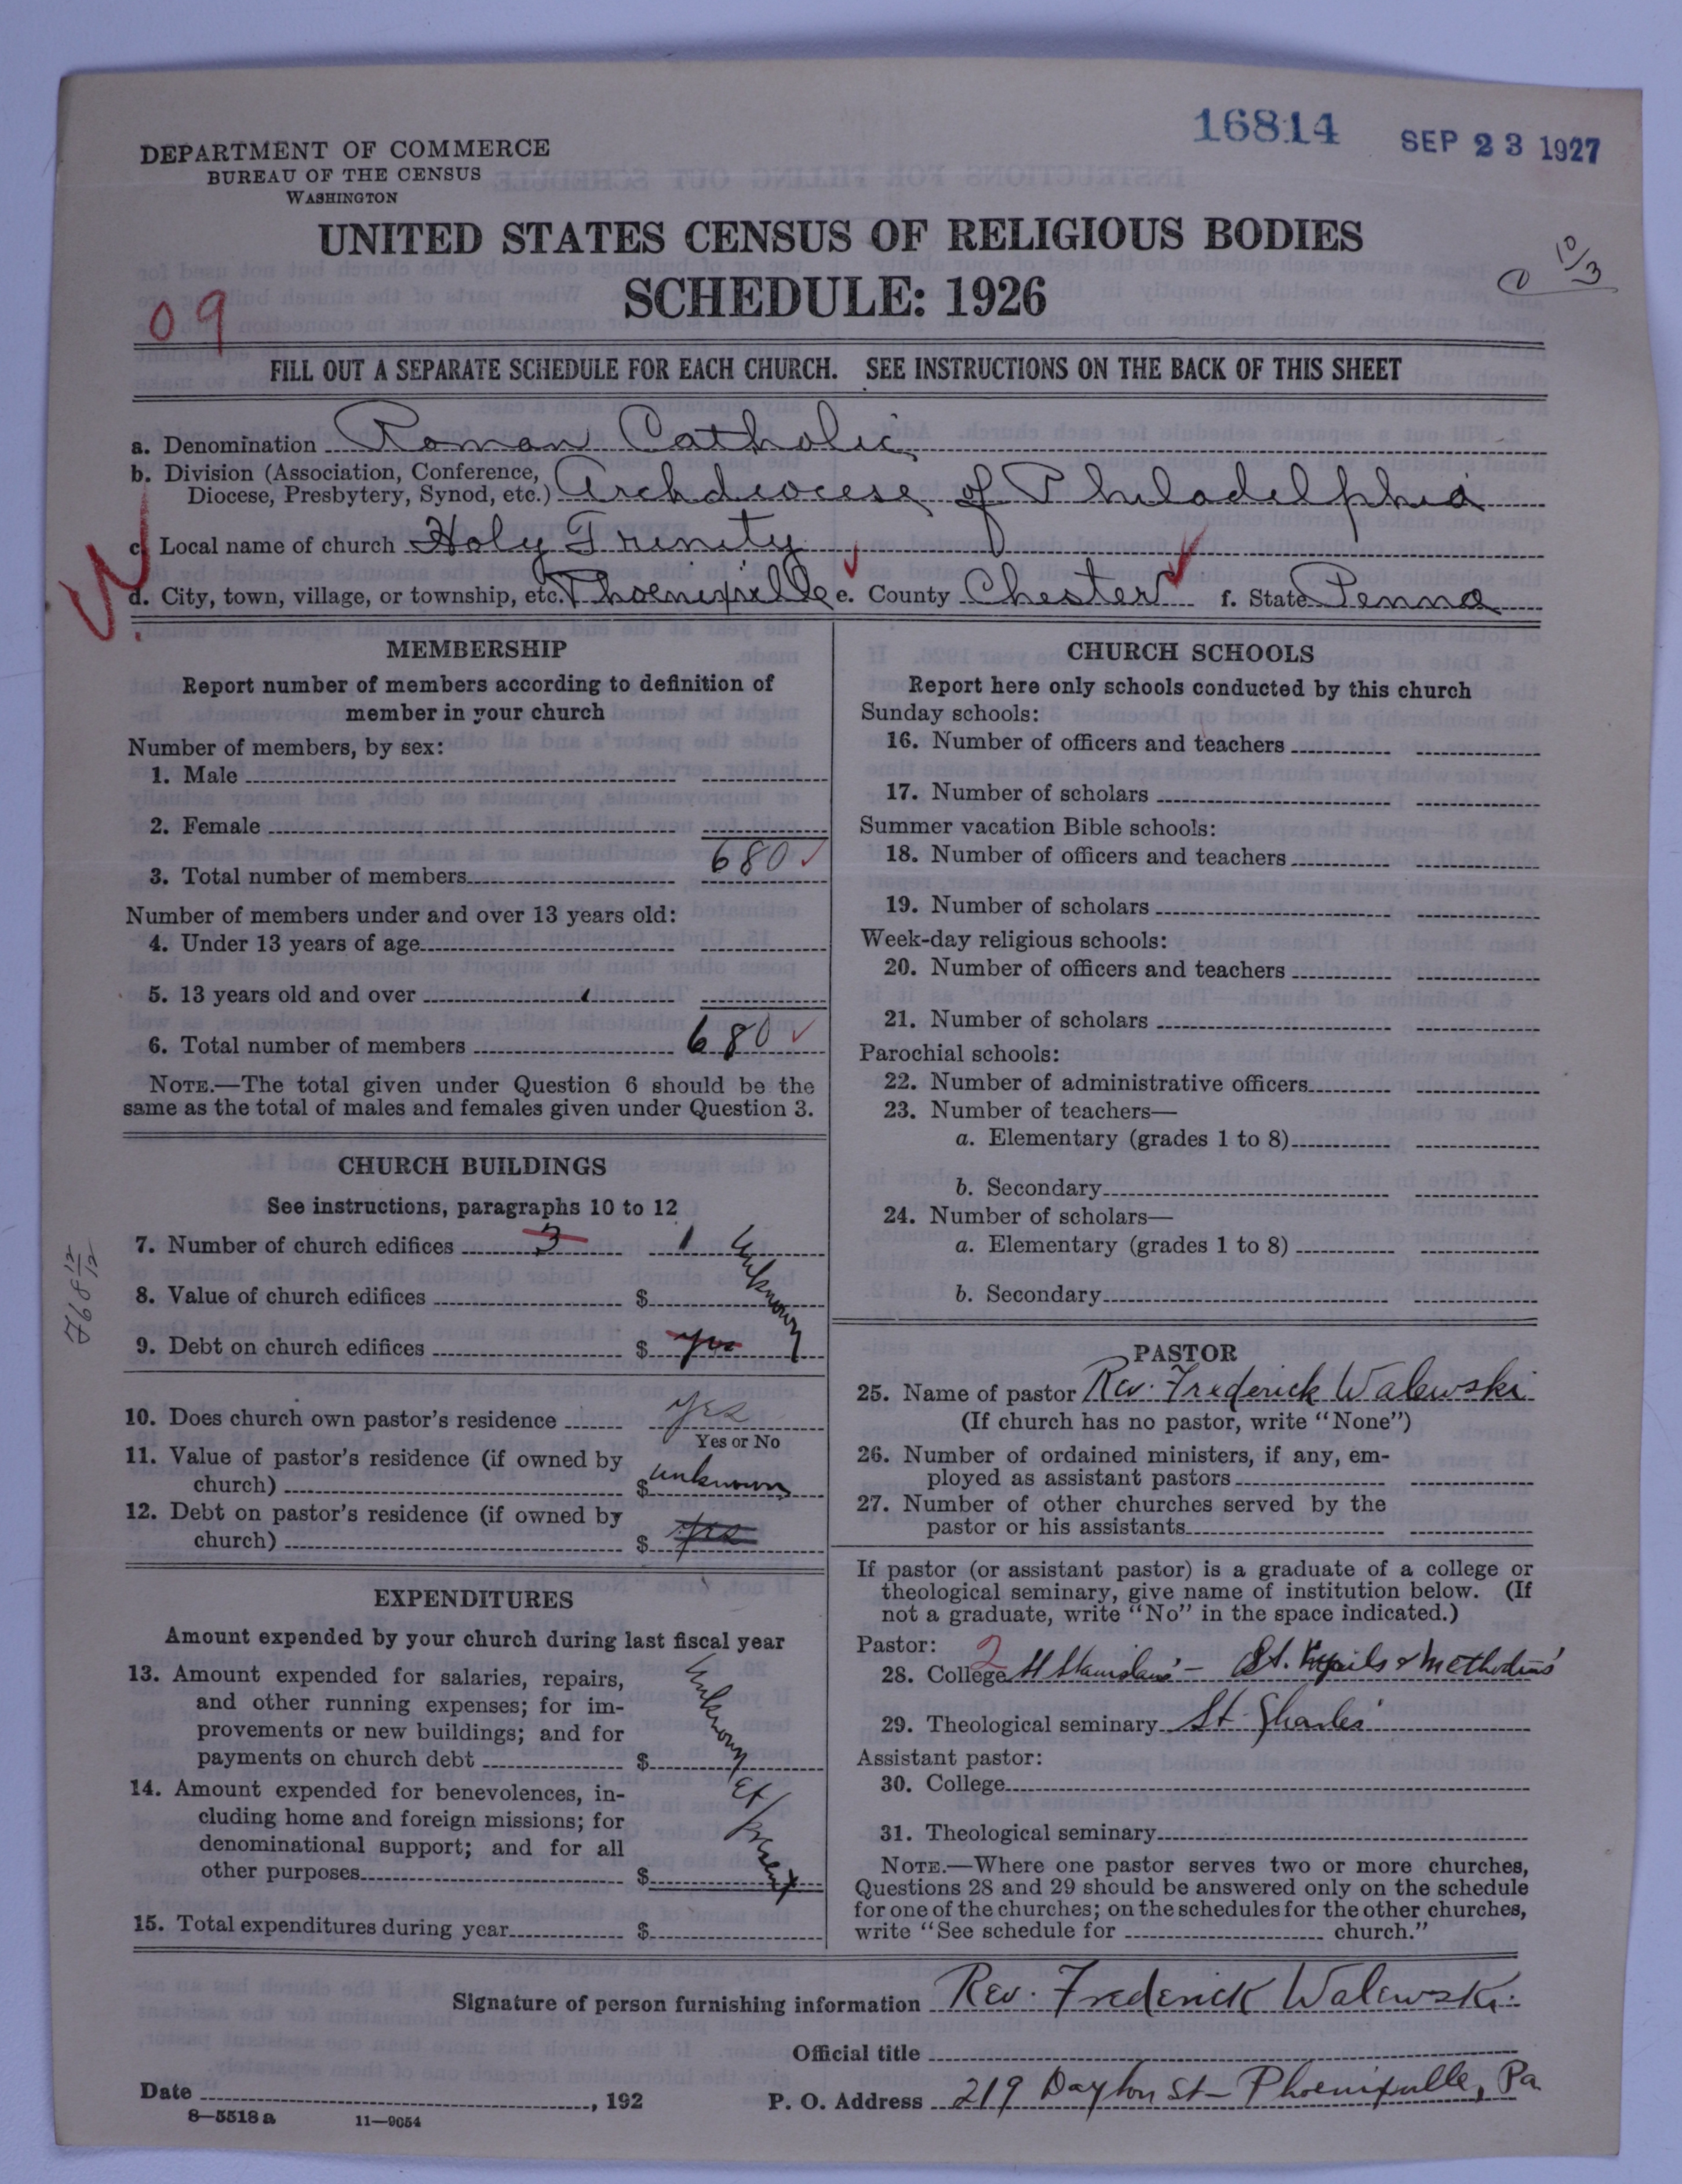 16814 SEP 23 1927
DEPARTMENT OF COMMERCE
BUREAU OF THE CENSUS
WASHINGTON
UNITED STATES CENSUS OF RELIGIOUS BODIES
SCHEDULE: 1926
10/3
09
FILL OUT A SEPARATE SCHEDULE FOR EACH CHURCH. SEE INSTRUCTIONS ON THE BACK OF THIS SHEET
a. Denomination Roman Catholic
b. Division (Association, Conference,
Diocese, Presbytery, Synod, etc.) Archdiocese of Philadelphia
c. Local name of church Holy Trinity
d. City, town, village, or township, etc. Phoenixville e. County Chester f. State Penna
MEMBERSHIP
Report number of members according to definition of
member in your church
Number of members, by sex:
1. Male
2. Female
3. Total number of members 680
Number of members under and over 13 years old:
4. Under 13 years of age
5. 13 years old and over
6. Total number of members 680
NOTE.—The total given under Question 6 should be the
same as the total of males and females given under Question 3.
CHURCH BUILDINGS
See instructions, paragraphs 10 to 12
7. Number of church edifices 3 1
8. Value of church edifices $ unknown
9. Debt on church edifices $ yes
10. Does church own pastor's residence yes
Yes or No
11. Value of pastor's residence (if owned by
church) $ unknown
12. Debt on pastor's residence (if owned by
church) $ yes
EXPENDITURES
Amount expended by your church during last fiscal year
13. Amount expended for salaries, repairs,
and other running expenses; for im-
provements or new buildings; and for
payments on church debt $
Unknown at present
14. Amount expended for benevolences, in-
cluding home and foreign missions; for
denominational support; and for all
other purposes $
15. Total expenditures during year $
CHURCH SCHOOLS
Report here only schools conducted by this church
Sunday schools:
16. Number of officers and teachers
17. Number of scholars
Summer vacation Bible schools:
18. Number of officers and teachers
19. Number of scholars
Week-day religious schools:
20. Number of officers and teachers
21. Number of scholars
Parochial schools:
22. Number of administrative officers
23. Number of teachers—
a. Elementary (grades 1 to 8)
b. Secondary
24. Number of scholars—
a. Elementary (grades 1 to 8)
b. Secondary
PASTOR
25. Name of pastor Rev. Frederick Walewski
(If church has no pastor, write "None")
26. Number of ordained ministers, if any, em-
ployed as assistant pastors
27. Number of other churches served by the
pastor or his assistants
If pastor (or assistant pastor) is a graduate of a college or
theological seminary, give name of institution below. (If
not a graduate, write "No" in the space indicated.)
Pastor: 2
28. College St Stanislaus' — St. & Methodius'
29. Theological seminary St. Charles'
Assistant pastor:
30. College
31. Theological seminary
NOTE.—Where one pastor serves two or more churches,
Questions 28 and 29 should be answered only on the schedule
for one of the churches; on the schedules for the other churches,
write "See schedule for church."
Signature of person furnishing information Rev. Frederick Walewski
Official title
Date , 192 P. O. Address 219 Dayton St — Phoenixville, Pa
8—5518 a 11—9054